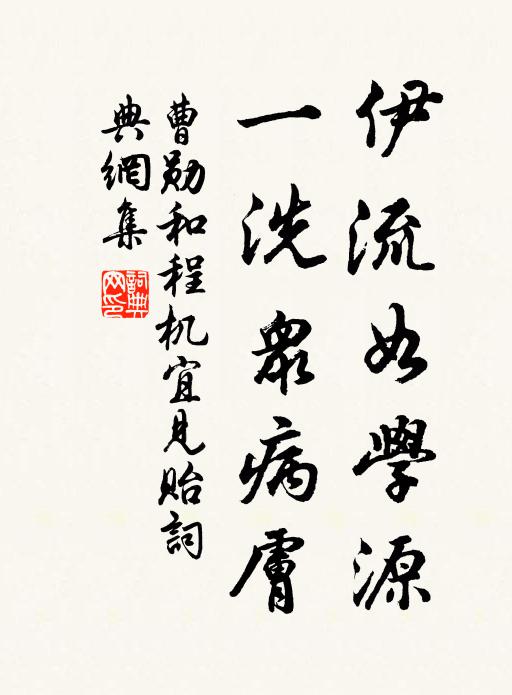 伊流如學源
一洗衆病膚
曹勛和程机宜見貽詞
典網集
詞典
网印